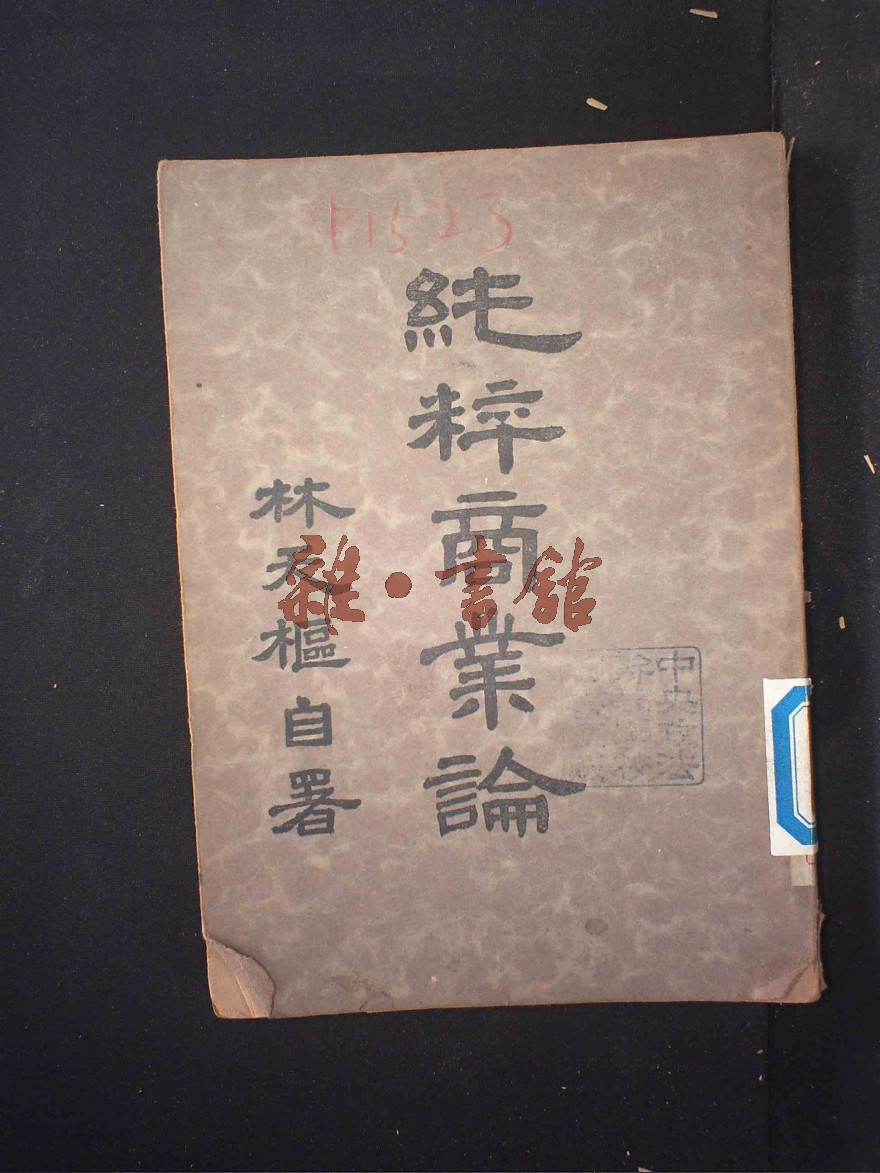 中1523
純粹商業論
林天樞自署
雜·書館
中央政法